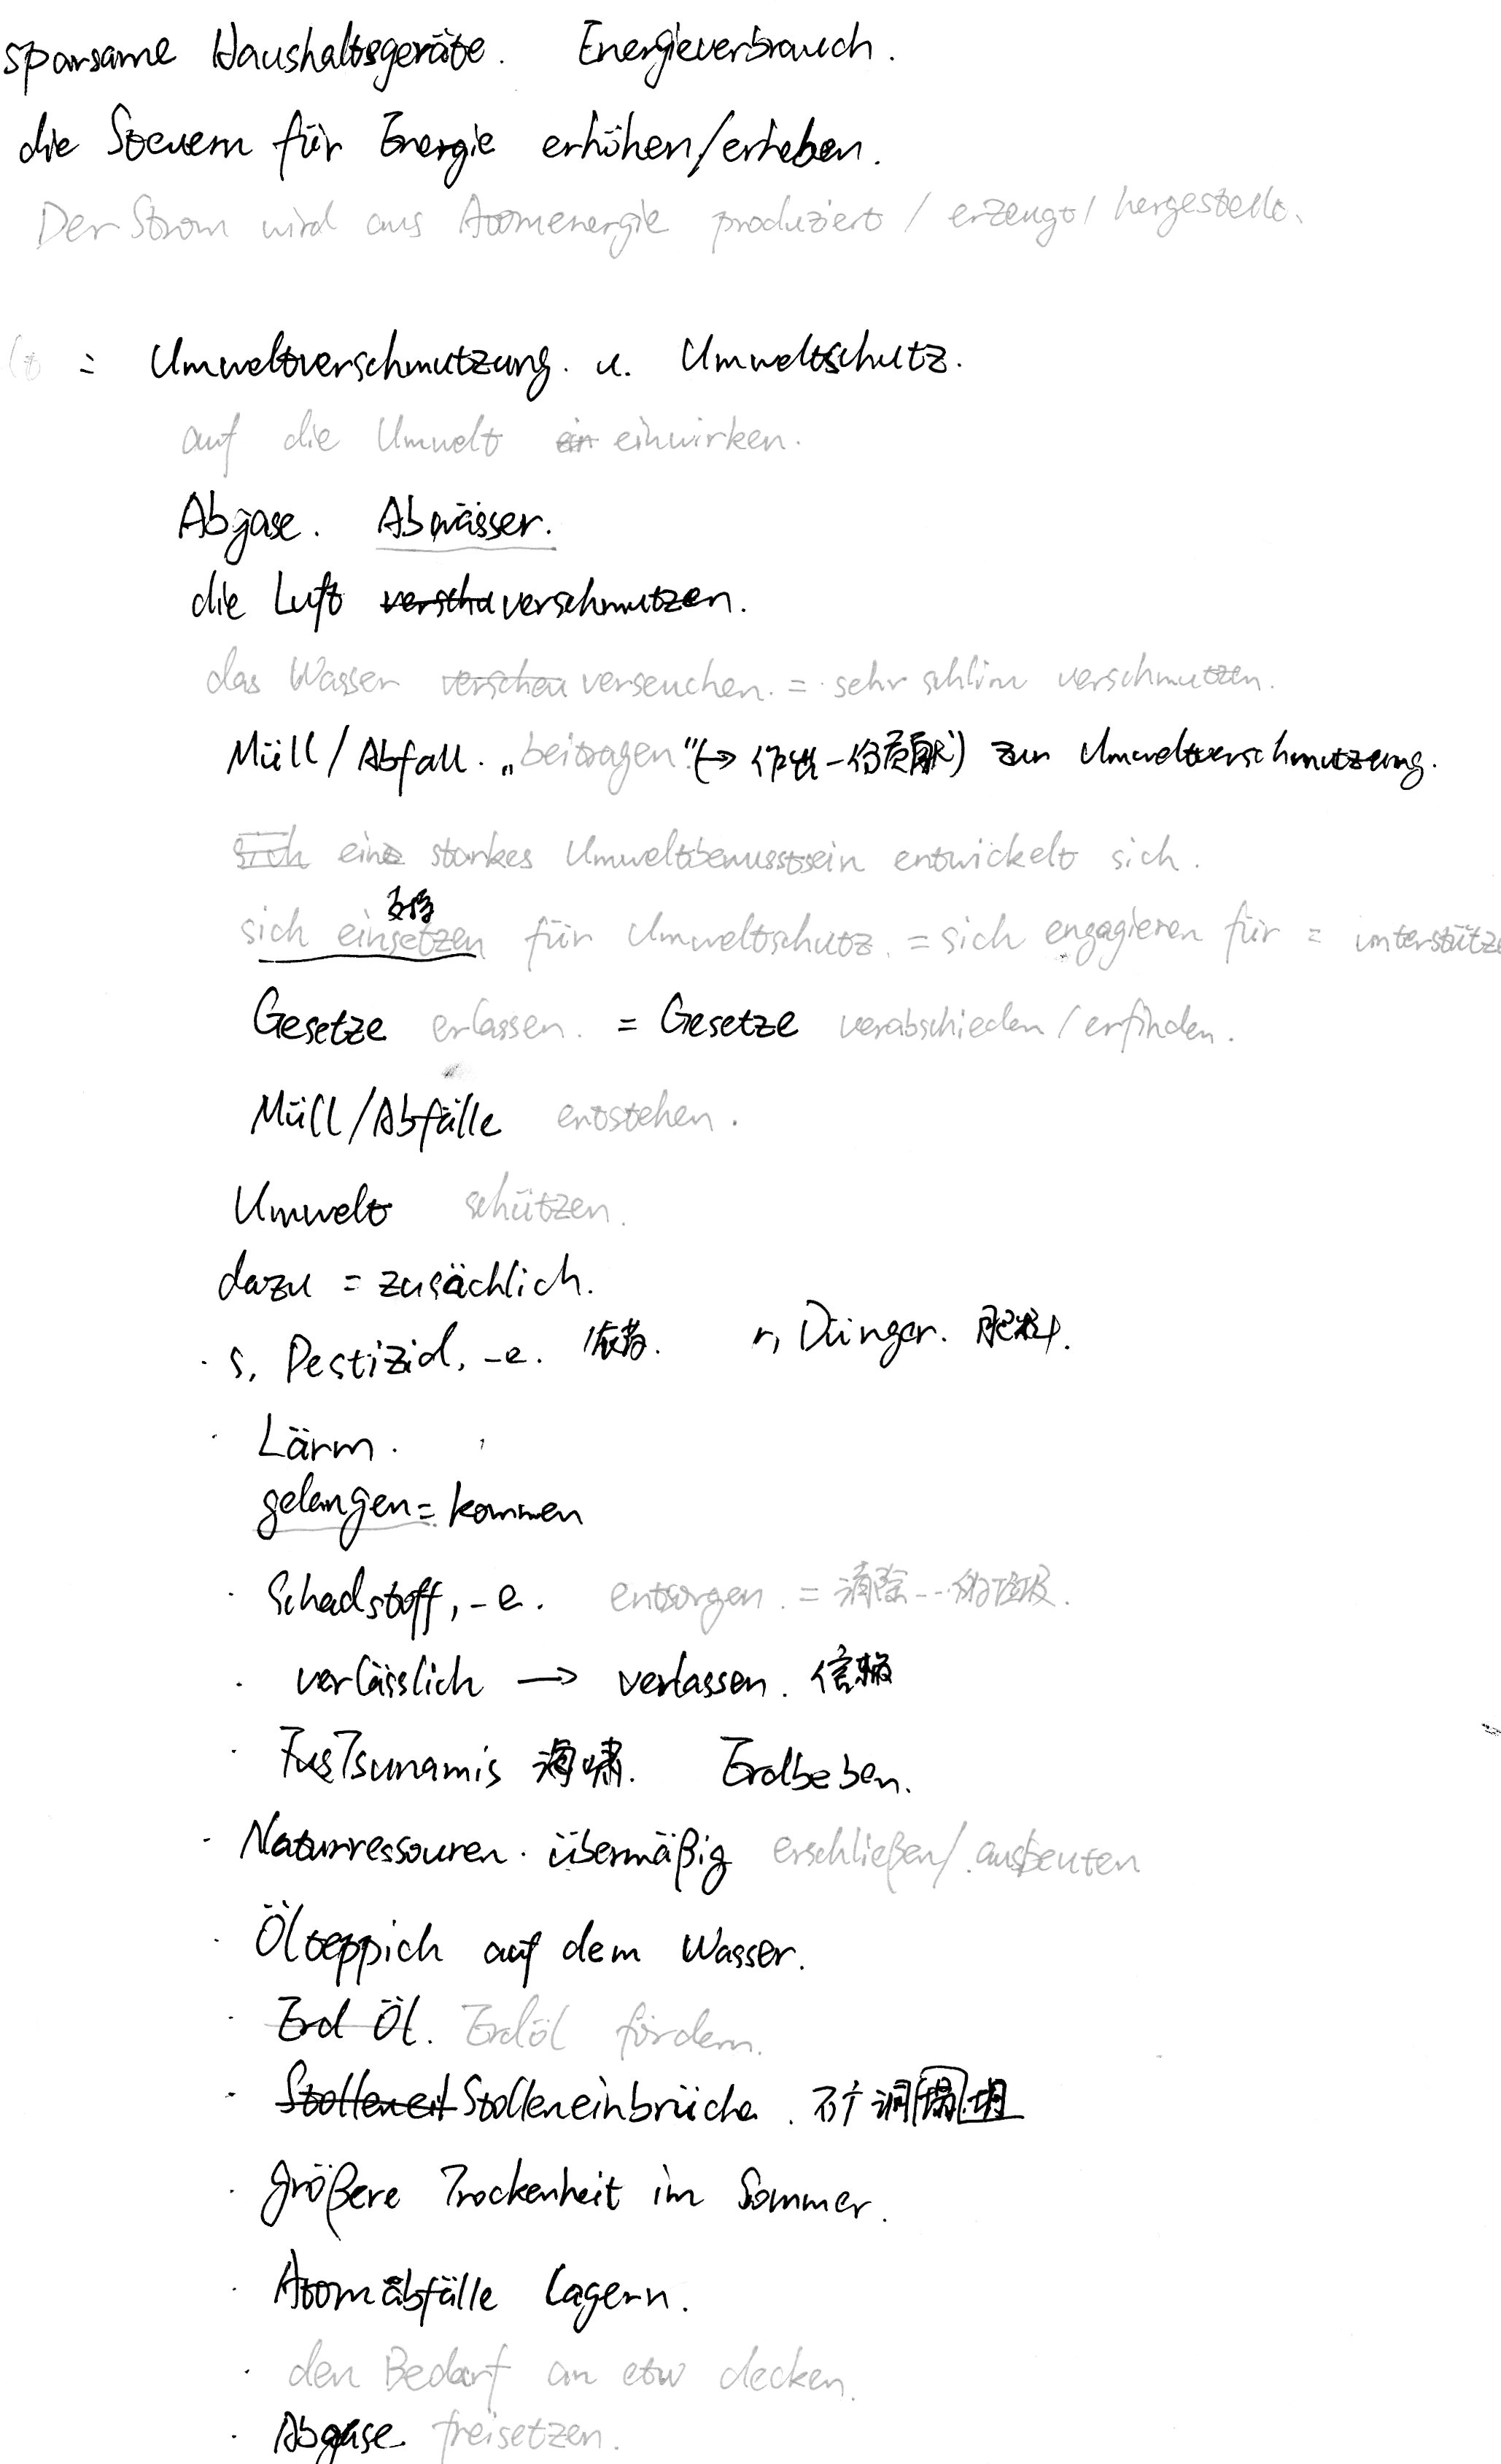 sparsame Haushaltsgeräte. Energieverbrauch.
die Steuern für Energie erhöhen/erheben.
Der Strom wird aus Atomenergie produziert / erzeugt / hergestellt.
= Umweltverschmutzung. u. Umweltschutz.
auf die Umwelt ein einwirken.
Abgase. Abwässer.
die Luft verschu verschmutzen.
das Wasser verscheu verseuchen. = sehr schlim verschmutzen.
Müll/Abfall. „beitragen" (→ 作出一份贡献) zur Umweltverschmutzung.
sich eine starkes Umweltbewusstsein entwickelt sich.
支持
sich einsetzen für Umweltschutz. = sich engagieren für = unterstütze
Gesetze erlassen. = Gesetze verabschieden / erfinden.
Müll/Abfälle entstehen.
Umwelt schützen.
dazu = zusächlich.
· s, Pestizid, -e. r, Dünger. 肥料.
· Lärm.
gelangen = kommen
· Schadstoff, -e. entsorgen. = 清除--的垃圾.
· verlässlich → verlassen. 信赖
· Tsunamis 海啸. Erdbeben.
· Naturressouren. übermäßig erschließen/ ausbeuten
· Ölteppich auf dem Wasser.
· Erd Öl. Erdöl fördern.
· Stolleneit Stolleneinbrüche. 矿洞塌坍
· größere Trockenheit im Sommer.
· Atomabfälle lagern.
· den Bedarf an etw decken.
· Abgase freisetzen.